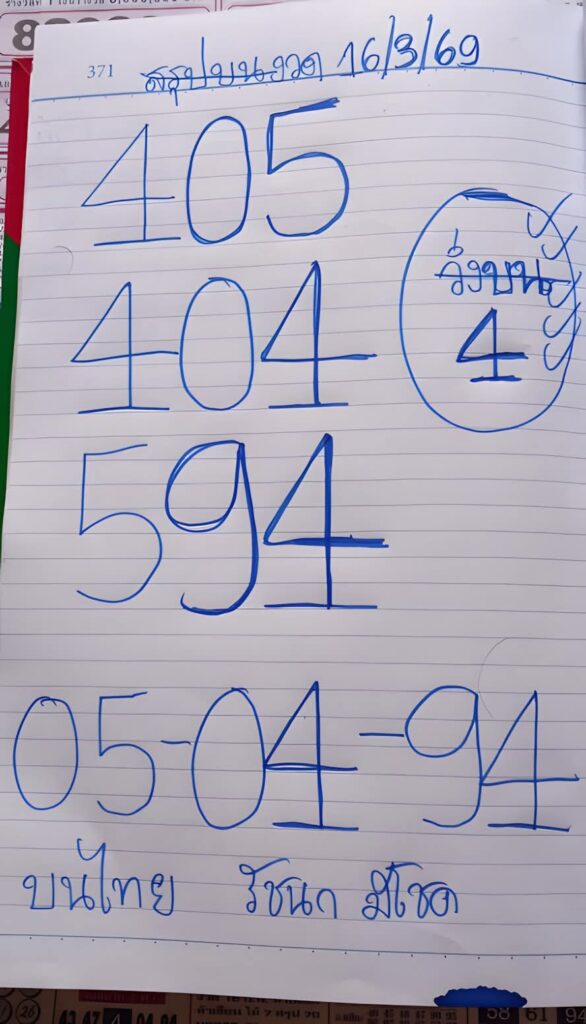 371 สรุปบนงวด 16/3/69
405
วิ่งบน
4
404
594
05-04-94
บนไทย รัชนก มีโชค
58 61 92